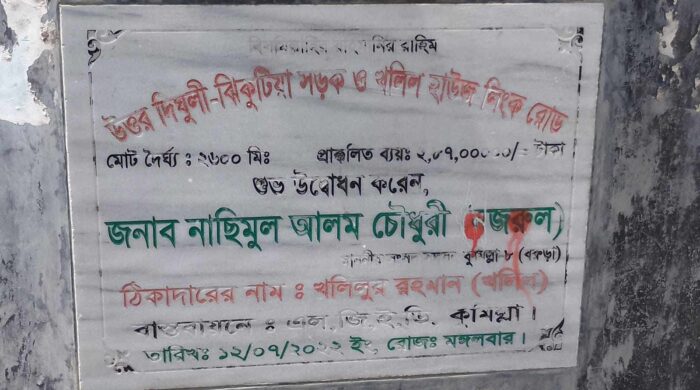 উত্তর দিঘুলী-ঝিকুটিয়া সড়ক ও খলিল হাউজ লিংক রোড
মোট দৈর্ঘ্য : ২৬০০ মিঃ প্রাক্কলিত ব্যয়ঃ ২,০৭,০০০০০/= টাকা
শুভ উদ্বোধন করেন,
জনাব নাছিমুল আলম চৌধুরী (নজরুল)
কুমিল্লা ৮ (বরুড়া)
ঠিকাদারের নাম : খলিলুর রহমান (খলিল)
বাস্তবায়নে : এল, জি, ই, ডি, কুমিল্লা।
তারিখঃ ১২/০৭/২০২২ ইং, রোজঃ মঙ্গলবার।